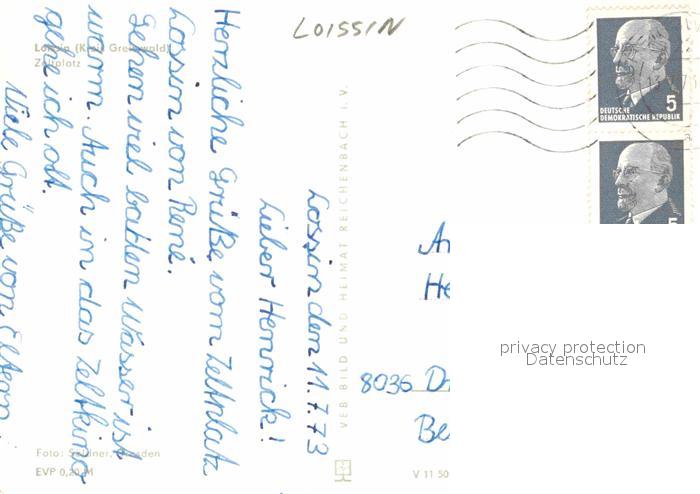 LOISSIN
Loissin (Kreis Greifswald)
Zeltplatz
Lossin den 11.7.73
Lieber Henrick!
Herzliche Grüße vom Zeltplatz
Lossin von René.
Gehen viel baden Wasser ist
warm. Auch in das Zeltkino
gehe ich oft.
Viele Grüße von Eltern
VEB BILD UND HEIMAT REICHENBACH I. V.
Foto: Dresden
EVP 0,20 M
V 11 50
DEUTSCHE
DEMOKRATISCHE REPUBLIK
5
5
An
He
8036 Dr
Be
privacy protection
Datenschutz